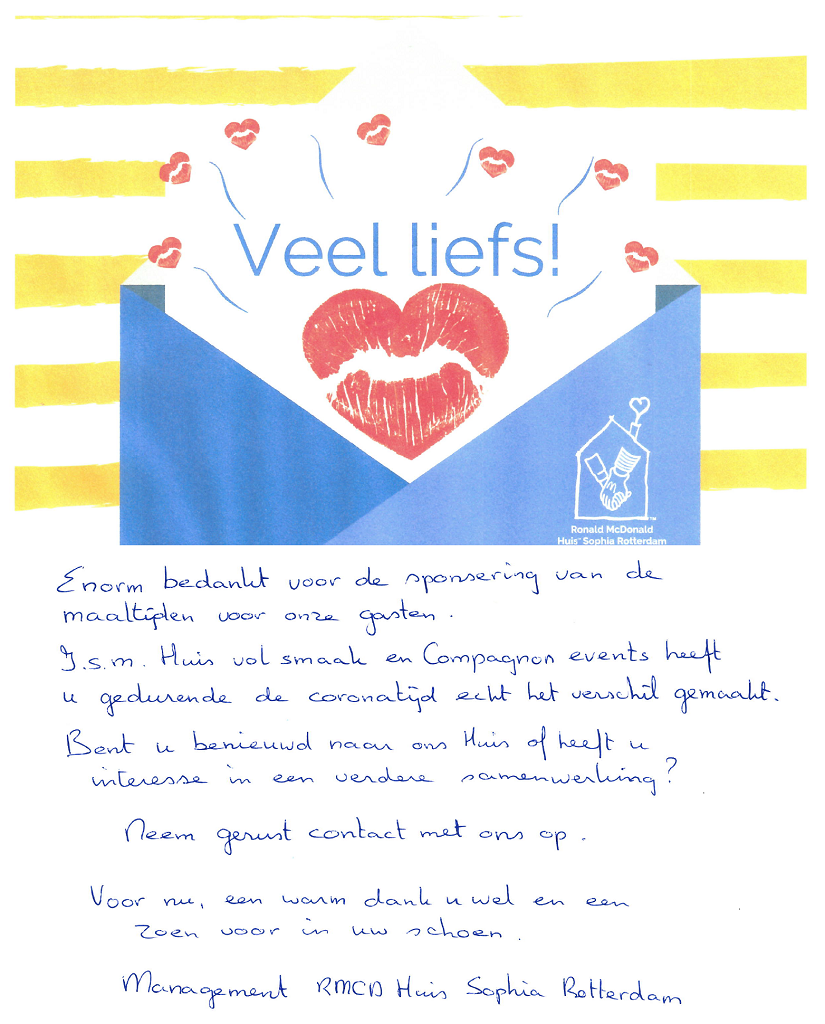 Veel liefs!
Ronald McDonald
Huis™ Sophia Rotterdam
Enorm bedankt voor de sponsering van de
maaltijden voor onze gasten.
I.s.m. Huis vol smaak en Compagnon events heeft
u gedurende de coronatijd echt het verschil gemaakt.
Bent u benieuwd naar ons Huis of heeft u
interesse in een verdere samenwerking?
Neem gerust contact met ons op.
Voor nu, een warm dank u wel en een
zoen voor in uw schoen.
Management RMCD Huis Sophia Rotterdam